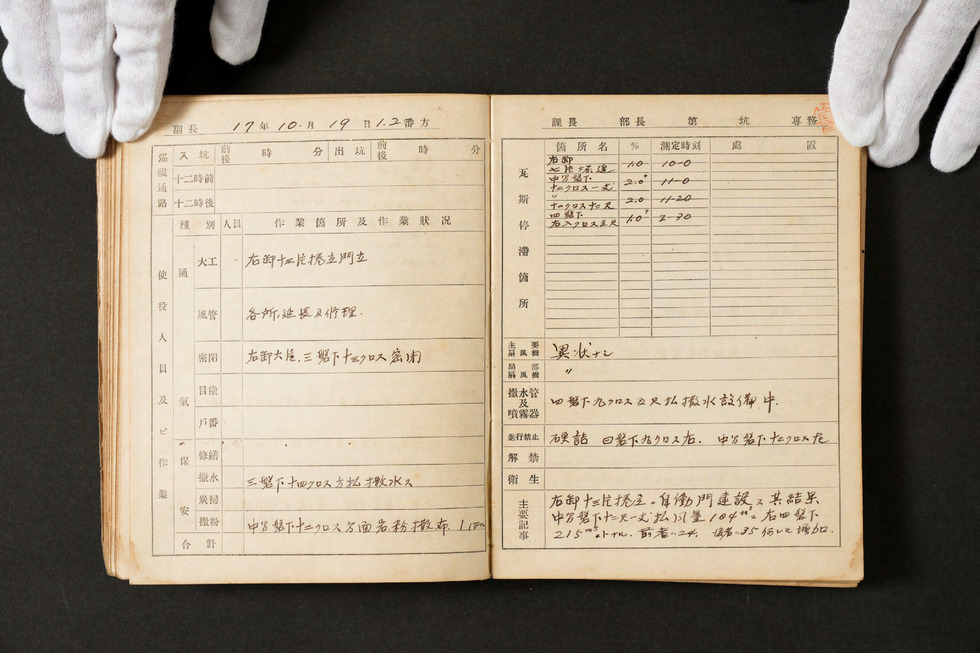 副長 17年10.月19日1.2番方
巡視通路 入坑 前後 時 分 出坑 前後 時 分
十二時前
十二時後
使役人員及ビ作業
種別 人員 作業箇所及作業狀況
通氣
大工 右卸十三片捲立門立
風管 各所、延長及修理.
密閉 右卸大片、三盤下十三クロス密閉
目塗
戶番
保安
修繕
撒水 三盤下十四クロス方払撒水ス
炭掃
撒粉 中分盤下十二クロス方面岩粉撒布.
合計
課長 部長 第 坑 專務
瓦斯停滯箇所
箇所名 % 測定時刻 處置
右卸
1.0 10-0
中分盤下
十二クロス一丈 2.0+ 11-0
〃
2.0 11-20
四盤下
1.0+ 2-30
主要扇風機 異狀ナシ
局部扇風機 〃
撒水管及噴霧器 四盤下九クロス五尺払撒水設備中.
進行禁止 硬詰 四盤下九クロス右. 中分盤下十二クロス左
解禁
衛生
主要記事
右卸十三片捲立ニ自働門建設ス其結果
中分盤下十二尺一丈払風量184m³ 右四盤下
215m³トナル. 前者ハ24. 後者ハ35何レモ增加.